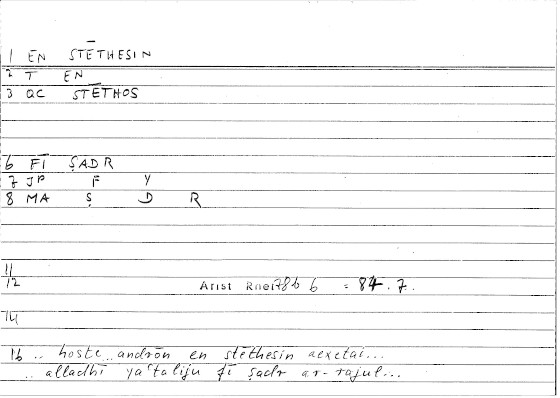 1 EN STĒTHESIN
2 T EN
3 QC STĒTHOS
6 FĪ ṢADR
7 JP F Y
8 MA Ṣ D R
11
12 Arist Rhet 78b 6 = 84.7.
14
16 .. hoste andrōn en stēthesin aexetai...
.. alladhī ya'taliju fī ṣadr ar-rajul...